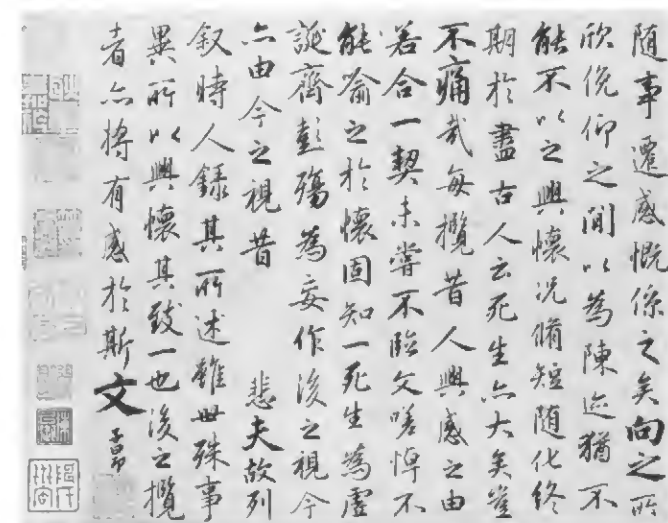 随事遷感慨係之矣向之所
欣俛仰之間以為陳迹猶不
能不以之興懷况脩短随化終
期於盡古人云死生亦大矣豈
不痛哉每攬昔人興感之由
若合一契未嘗不臨文嗟悼不
能喻之於懷固知一死生為虛
誕齊彭殤為妄作後之視今
亦由今之視昔 悲夫故列
叙時人錄其所述雖世殊事
異所以興懷其致一也後之攬
者亦將有感於斯文 子昂